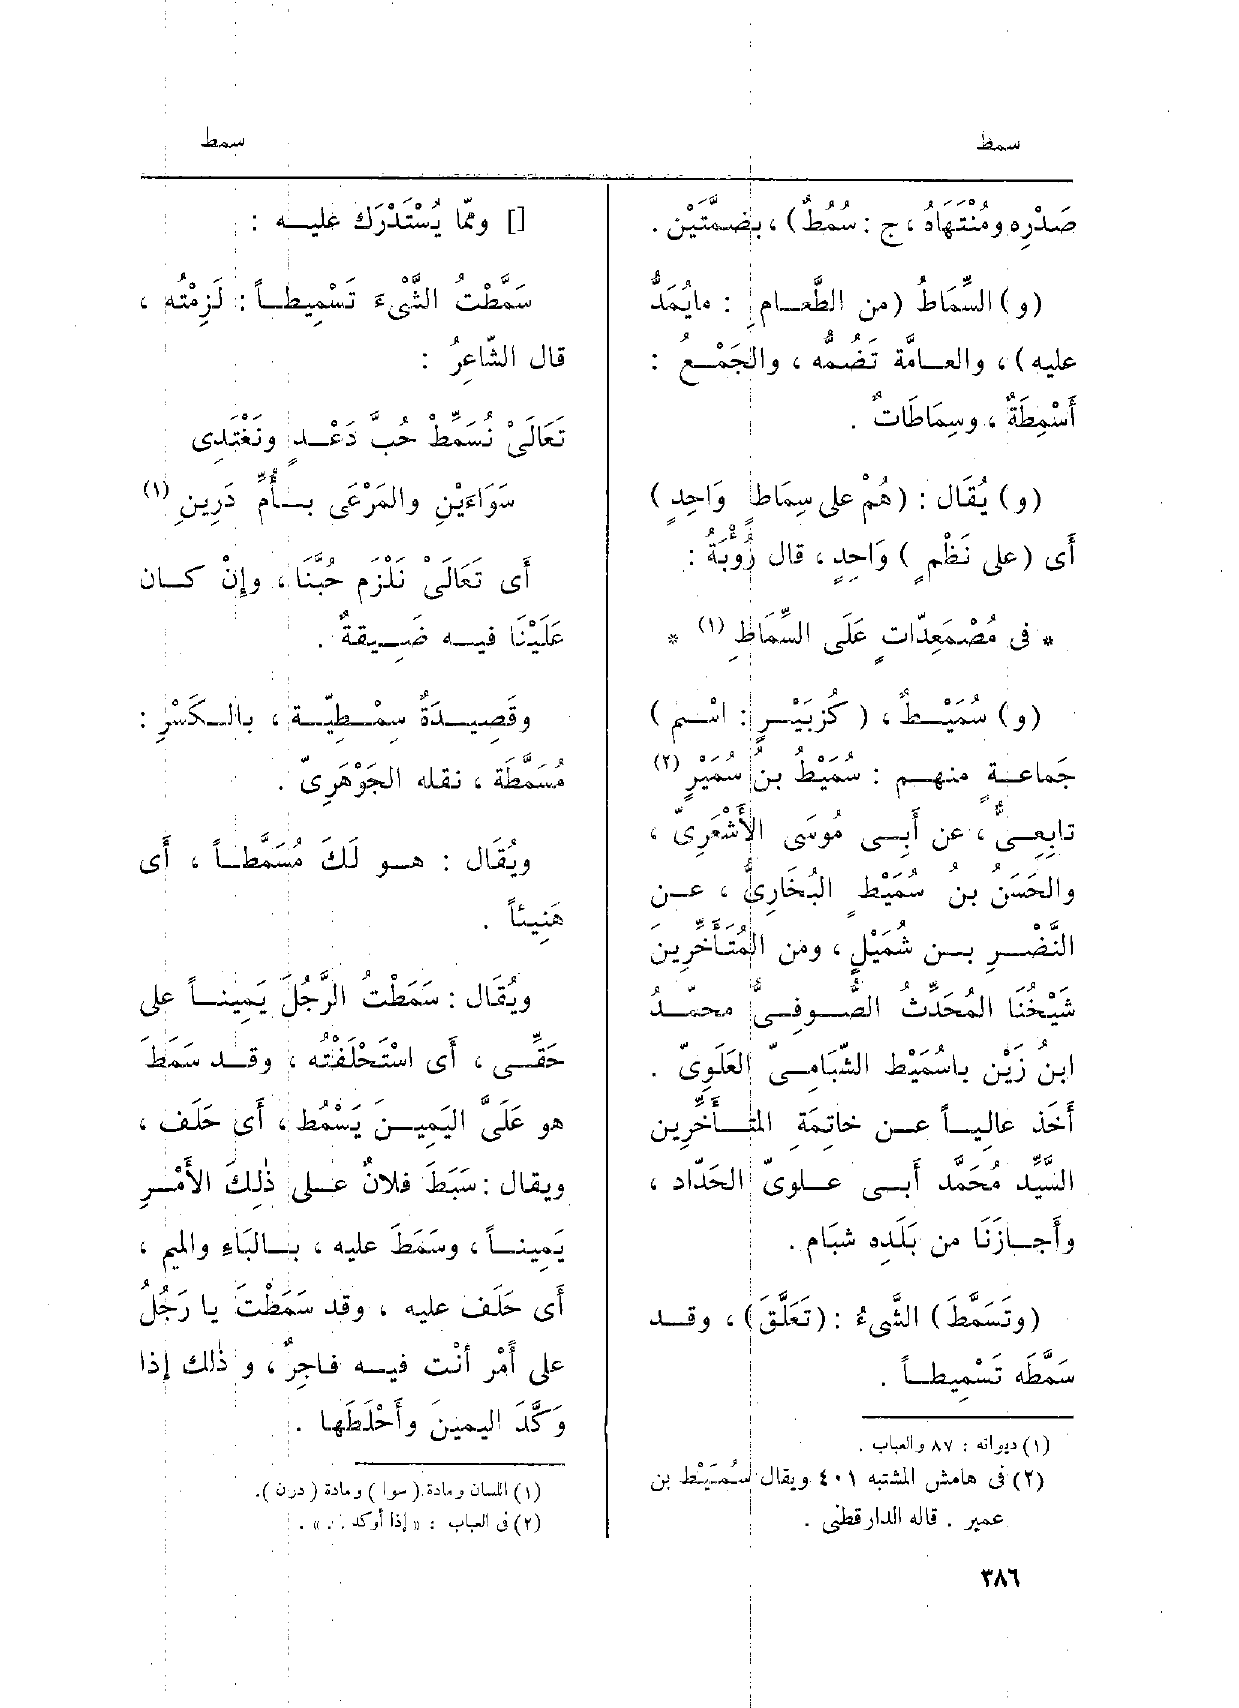 سمط
سمط
صَدْرِه ومُنْتَهَاهُ ، ج : سُمُطٌ) ، بضَمَّتَيْن .
(و) السِّمَاطُ (من الطَّعامِ : مايُمَدُّ
عليه) ، والعامَّة تَضُمُّه ، والجَمْعُ :
أَسْمِطَةٌ ، وسِمَاطَاتٌ .
(و) يُقَال : (هُمْ على سِمَاطٍ وَاحِدٍ)
أَى (على نَظْمٍ) وَاحِدٍ ، قال رُؤْبَةُ :
* فى مُصْمَعِدّاتٍ عَلَى السِّمَاطِ (١) *
(و) سُمَيْطٌ ، (كزُبَيْرٍ : اسْم)
جَماعةٍ منهم : سُمَيْطُ بنُ سُمَيْرٍ (٢)
تابِعِىٌّ ، عن أَبِى مُوسَى الأَشْعَرِىّ ،
والحَسَنُ بن سُمَيْطٍ البُخَارِىُّ ، عن
النَّضْرِ بن شُمَيْلٍ ، ومن المُتَأَخِّرِينَ
شَيْخُنَا المُحَدِّثُ الصُّوفِىُّ محمّدُ
ابنُ زَيْن باسُمَيْط الشِّبَامِىّ العَلَوِىّ .
أَخَذ عالِياً عن خاتِمَةِ المتأَخِّرِين
السَّيِّد مُحَمَّد أَبى علوىّ الحَدّاد ،
وأَجازَنَا من بَلَدِه شبَام .
(وتَسَمَّطَ) الشَّىءُ : (تَعَلَّقَ) ، وقد
سَمَّطَه تَسْمِيطاً .
(١) ديوانه : ٨٧ والعباب .
(٢) فى هامش المشتبه ٤٠١ ويقال سُمَيْط بن
عمير . قاله الدارقطنى .
[] وممّا يُسْتَدْرَك عليه :
سَمَّطْتُ الشَّىْءَ تَسْمِيطاً : لَزِمْتُه ،
قال الشّاعِرُ :
تَعَالَىْ نُسَمِّطْ حُبَّ دَعْدٍ ونَغْتَدِى
سَوَاءَيْنِ والمَرْعَى بأُمِّ دَرِينِ (١)
أَى تَعَالَىْ نَلْزَم حُبَّنَا ، وإِنْ كان
عَلَيْنَا فيه ضَيِقةٌ .
وقَصِيدَةٌ سِمْطِيّة ، بالكَسْرِ :
مُسَمَّطَة ، نقله الجَوْهَرِىّ .
ويُقَال : هو لَكَ مُسَمَّطاً ، أَى
هَنِيئاً .
ويُقَال : سَمَطْتُ الرَّجُلَ يَمِيناً على
حَقِّى ، أَى اسْتَحْلَفْتُه ، وقد سَمَطَ
هو عَلَىَّ اليَمِينَ يَسْمُط ، أَى حَلَف ،
ويقال : سَبَطَ فلانٌ على ذٰلِكَ الأَمْرِ
يَمِيناً ، وسَمَطَ عليه ، بالبَاءِ والميم ،
أَى حَلَف عليه ، وقد سَمَطْتَ يا رَجُلُ
على أَمْر أَنْت فيه فاجِرٌ ، و ذٰلك إذا
وَكَّدَ اليمينَ وأَحْلَطَها .
(١) اللسان ومادة (سوا) ومادة (درن).
(٢) فى العباب : «إذا أوكد . . » .
٣٨٦